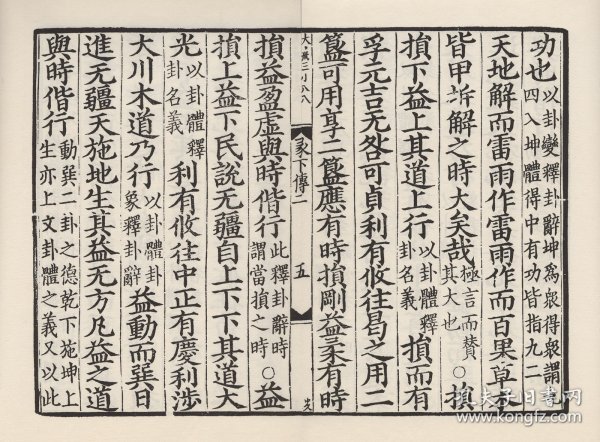 功也以卦變釋卦辭坤為衆得衆謂
四入坤體得中有功皆指九二
天地解而雷雨作雷雨作而百果草木
皆甲坼解之時大矣哉極言而贊
其大也○損
損下益上其道上行以卦體釋
卦名義損而有
孚元吉无咎可貞利有攸往曷之用二
簋可用享二簋應有時損剛益柔有時
彖下傳二 五
損益盈虛與時偕行此釋卦辭時
謂當損之時○益
損上益下民說无疆自上下下其道大
光以卦體釋
卦名義利有攸往中正有慶利涉
大川木道乃行以卦體卦
象釋卦辭益動而巽日
進无疆天施地生其益无方凡益之道
與時偕行動巽二卦之德乾下施坤上
生亦上文卦體之義又以此
www.kongfz.com